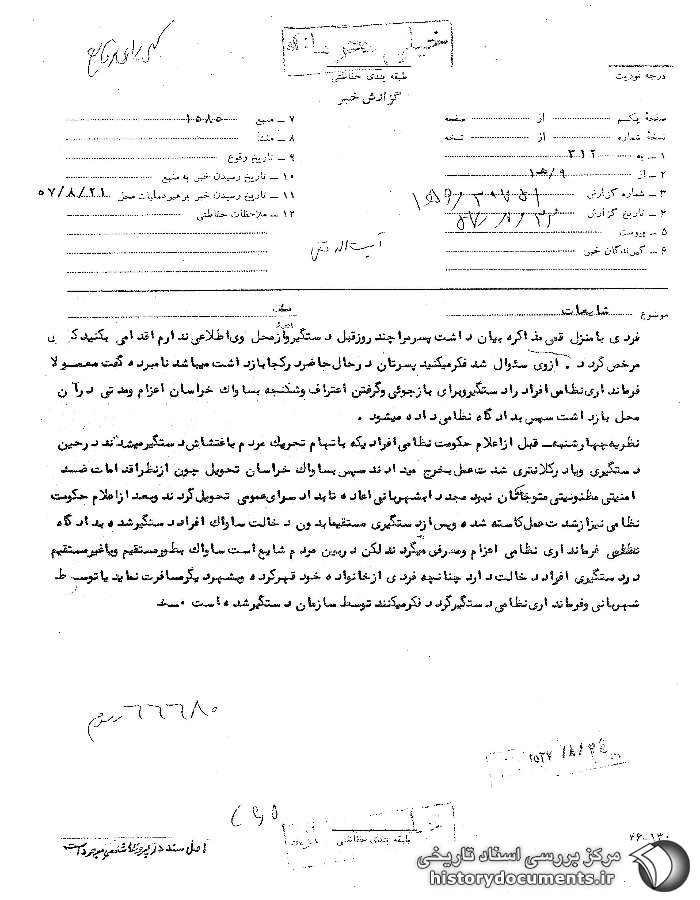 خیلی محرمانه
طبقه بندی حفاظتی
گزارش خبر
درجه فوریت
صفحهٔ یکم از صفحه
نسخهٔ شماره از نسخه
۱ – به ۳۱۲
۲ – از ۹ھ۱
۳ – شماره گزارش
۴ – تاریخ گزارش
۵ – پیوست
۶ – گیرندگان خبر
۷ – منبع ۱۵۸۵۰
۸ – منشأ
۹ – تاریخ وقوع
۱۰ – تاریخ رسیدن خبر به منبع
۱۱ – تاریخ رسیدن خبر برهبر عملیات محل ۵۷/۸/۲۱
۱۲ – ملاحظات حفاظتی
آیت‌اله قمی
موضوع شایعات
فردی بامنزل قمی مذاکره بیان داشت پسرمرا چند روزقبل دستگیروازمحل وی اطلاعی ندارم اقدامی بکنید که
مرخص گردد. ازوی سئوال شد فکرمیکنید پسرتان درحال حاضر درکجا بازداشت میباشد نامبرده گفت معمولا
فرمانداری نظامی افراد رادستگیروبرای بازجوئی وگرفتن اعتراف وشکنجه بساواک خراسان اعزام ومدتی درآن
محل بازداشت سپس بدادگاه نظامی داده میشود.
نظریه چهارشنبه– قبل ازاعلام حکومت نظامی افرادیکه باتهام تحریک مردم باغتشاش دستگیرمیشدند درحین
دستگیری ویادرکلانتری شدت عمل بخرج میدادند سپس بساواک خراسان تحویل چون ازنظراقدامات ضد
امنیتی مظنونیتی متوجه آنان نبود مجددا بشهربانی اعاده تابدادسرای عمومی تحویل گردند وبعد ازاعلام حکومت
نظامی نیزازشدت عمل کاسته شده وپس ازدستگیری مستقیما بدون دخالت ساواک افراد دستگیرشده بدادگاه
نظامی فرمانداری نظامی اعزام ومعرفی میگردند لکن دربین مردم شایع است ساواک بطورمستقیم ویاغیرمستقیم
دردستگیری افراد دخالت دارد چنانچه فردی ازخانواده خود قهرکرده وبشهردیگرمسافرت نماید یاتوسط
شهربانی وفرمانداری نظامی دستگیرگردد فکرمیکنند توسط سازمان دستگیرشده است
۶۶۶۸۰
طبقه بندی حفاظتی
۴۶-۱۳۰
اصل سند در پرونده
مرکز بررسی اسناد تاریخی
historydocuments.ir